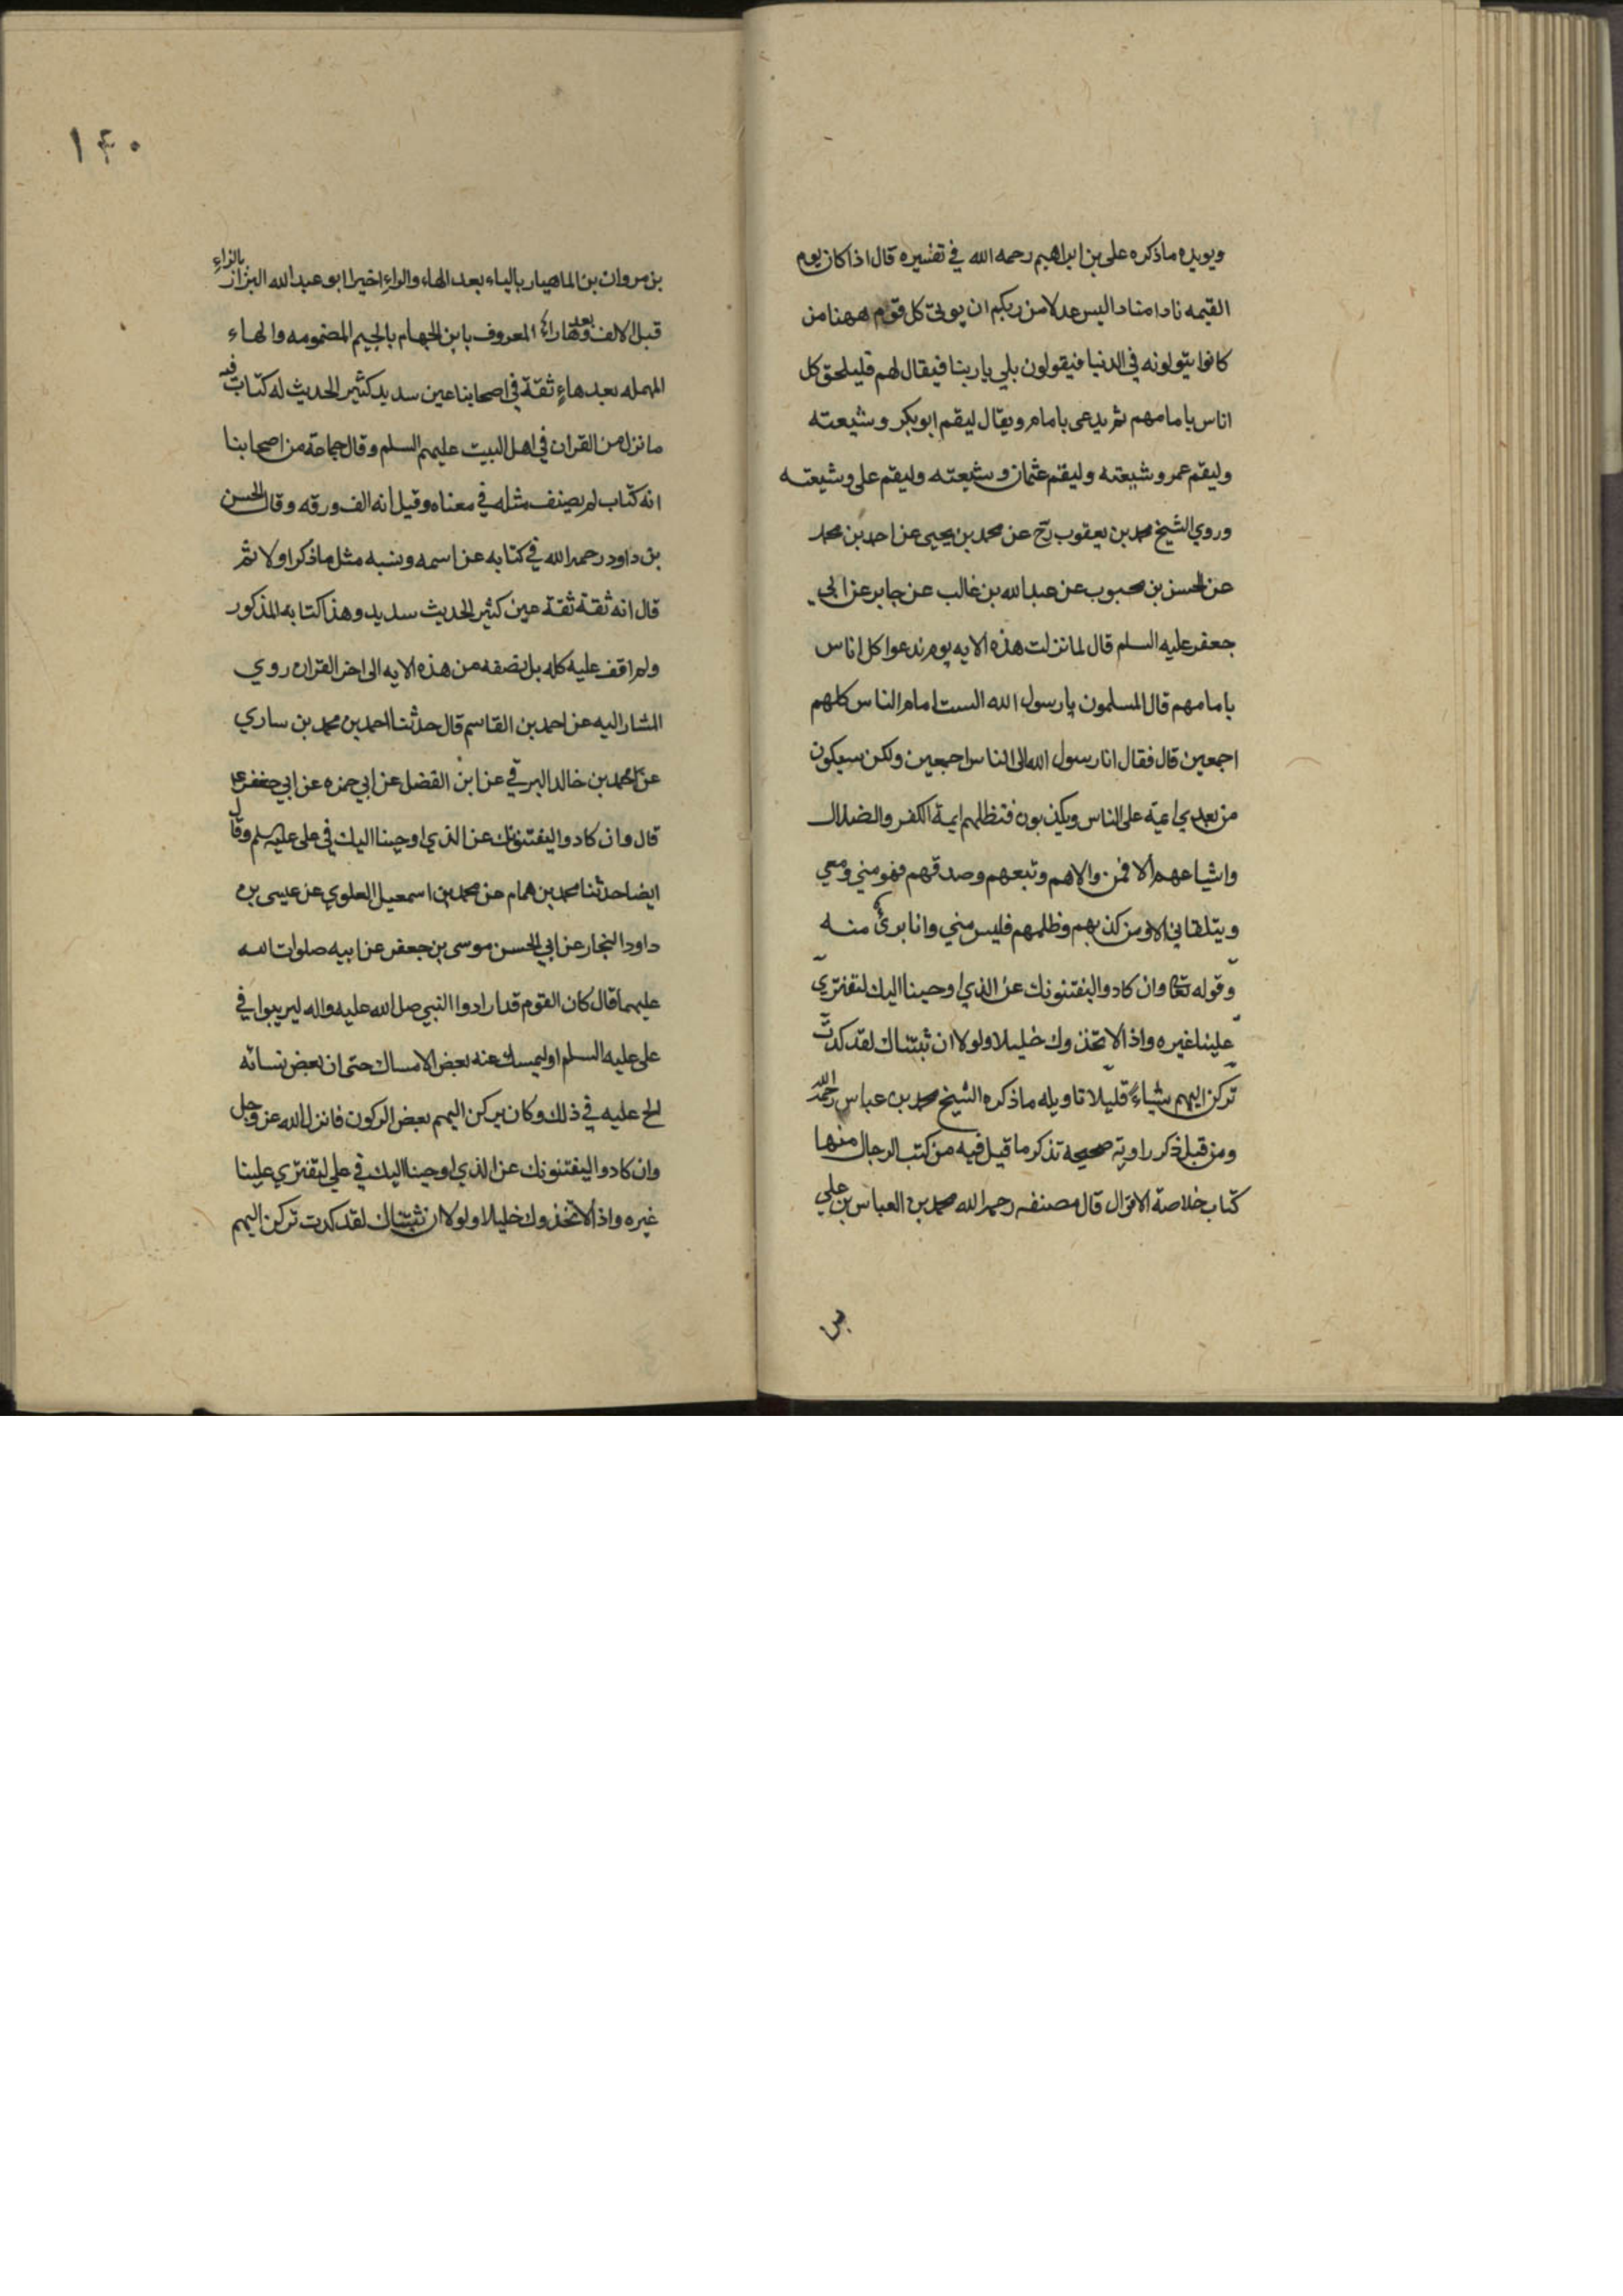 ويويده ماذكره على بن ابراهيم رحمه الله في تفسيره قال اذا كان يوم
القيمه نادا مناد اليس عدلا من ربكم ان يولى كل قوم ههنا من
كانوا يتولونه في الدنيا فيقولون بلي يا ربنا فيقال لهم فليلحق كل
اناس بامامهم ثم يدعى بامام ويقال ليقم ابوبكر وشيعته
وليقم عمر وشيعته وليقم عثمان وشيعته وليقم على وشيعته
وروي الشيخ محمد بن يعقوب رح عن محمد بن يحيى عن احمد بن محمد
عن الحسن بن محبوب عن عبدالله بن غالب عن جابر عن ابي
جعفر عليه السلم قال لما نزلت هذه الايه يوم ندعوا كل اناس
بامامهم قال المسلمون يا رسول الله الست امام الناس كلهم
اجمعين قال فقال انا رسول الله الى الناس اجمعين ولكن سيكون
من بعدي ايمة على الناس ويكذبون فتظلمهم ايمة الكفر والضلال
واشياعهم الا فمن والاهم وتبعهم وصدقهم فهو مني ومعي
ويتلقاني الا ومن كذبهم وظلمهم فليس مني وانا بريء منه
وقوله تعا وان كادوا ليفتنونك عن الذي اوحينا اليك لتفتري
علينا غيره واذا لا تخذوك خليلا ولولا ان ثبتناك لقد كدت
تركن اليهم شياء قليلا تاويله ماذكره الشيخ محمد بن عباس رحمه الله
ومن قبل ذكر راويه صحيحه تذكر ما قيل فيه من كتب الرجال منها
كتاب خلاصة الاقوال قال مصنفه رحمه الله محمد بن العباس بن علي
بن
١٤٠
بن مروان بن الماهيار بالياء بعد الهاء والراء اخيرا ابو عبدالله البزاز بالزاء
قبل الالف وبعدها راء المعروف بابن الجهام بالجيم المضمومه والهاء
المهمله بعدها ثقة في اصحابنا عين سديد كثير الحديث له كتاب فيه
ما نزل من القران في اهل البيت عليهم السلم وقال جماعة من اصحابنا
انه كتاب لم يصنف مثله في معناه وقيل انه الف ورقه وقال الحسن
بن داود رحمه الله في كتابه عن اسمه ونسبه مثل ماذكر اولا ثم
قال انه ثقة ثقة عين كثير الحديث سديد وهذا كتابه المذكور
ولم اقف عليه كله بل نصفه من هذه الايه الى اخر القران روي
المشار اليه عن احمد بن القاسم قال حدثنا احمد بن محمد بن ساري
عن محمد بن خالد البرقي عن ابن الفضل عن ابي حمزه عن ابي جعفر ع
قال وان كادوا ليفتنونك عن الذي اوحينا اليك في على عليه سلم وقال
ايضا حدثنا محمد بن همام عن محمد بن اسمعيل العلوي عن عيسى بن
داود النجار عن ابي الحسن موسى بن جعفر عن ابيه صلوات الله
عليهما قال كان القوم قد ارادوا النبي صل الله عليه واله ليريبوا في
على عليه السلم او ليمسك عنه بعض الامساك حتى ان بعض نسائه
الح عليه في ذلك وكان يركن اليهم بعض الركون فانزل الله عز وجل
وان كادوا ليفتنونك عن الذي اوحينا اليك في علي لتفتري علينا
غيره واذا لا تخذوك خليلا ولولا ان ثبتناك لقد كدت تركن اليهم